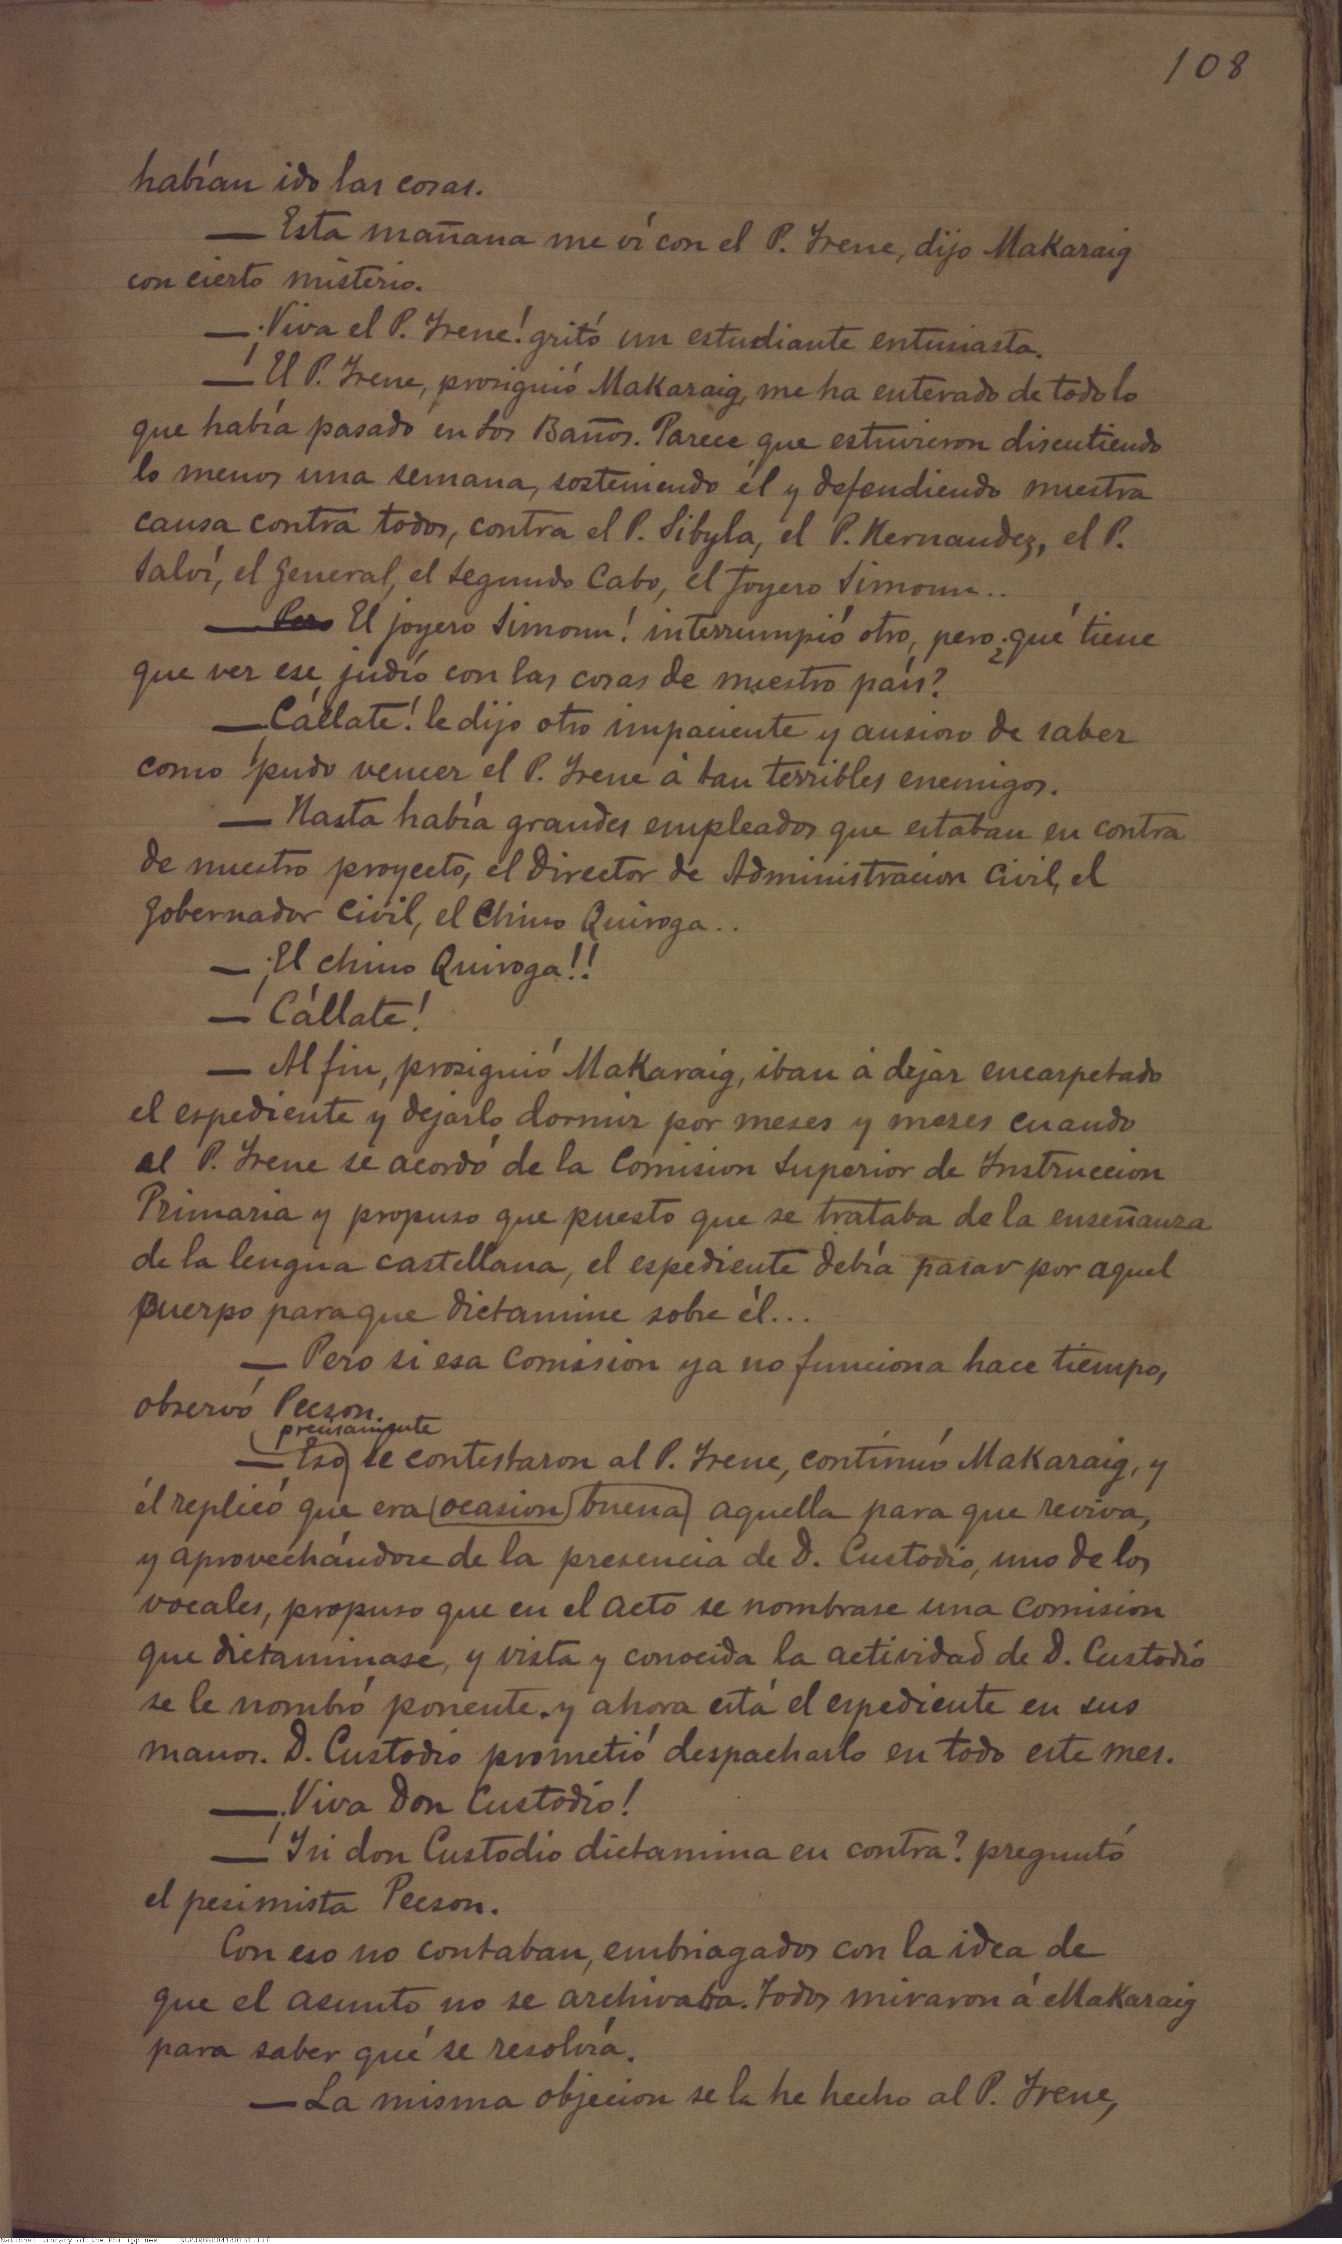 108
habían ido las cosas.
— Esta mañana me ví con el P. Irene, dijo Makaraig
con cierto misterio.
— ¡Viva el P. Irene! gritó un estudiante entusiasta.
— El P. Irene, prosiguió Makaraig, me ha enterado de todo lo
que había pasado en Los Baños. Parece que estuvieron discutiendo
lo menos una semana, sosteniendo él y defendiendo nuestra
causa contra todos, contra el P. Sibyla, el P. Hernandez, el P.
Salví, el General, el Segundo Cabo, el joyero Simoun..
— Pero El joyero Simoun! interrumpió otro, pero ¿qué tiene
que ver ese judío con las cosas de nuestro país?
— Cállate! le dijo otro impaciente y ansioso de saber
como pudo vencer el P. Irene á tan terribles enemigos.
— Hasta había grandes empleados que estaban en contra
de nuestro proyecto, el Director de Administracion Civil, el
Gobernador Civil, el Chino Quiroga..
— ¡El chino Quiroga!!
— Cállate!
— Al fin, prosiguió Makaraig, iban á dejar encarpetado
el espediente y dejarlo dormir por meses y meses cuando
el P. Irene se acordó de la Comision Superior de Instruccion
Primaria y propuso que puesto que se trataba de la enseñanza
de la lengua castellana, el espediente debía pasar por aquel
cuerpo para que dictamine sobre él...
— Pero si esa Comision ya no funciona hace tiempo,
observó Pecson.
precisamente
— Eso le contestaron al P. Irene, continuó Makaraig, y
él replicó que era ocasion buena aquella para que reviva,
y aprovechándose de la presencia de D. Custodio, uno de los
vocales, propuso que en el acto se nombrase una comision
que dictaminase, y vista y conocida la actividad de D. Custodio
se le nombró ponente. y ahora está el espediente en sus
manos. D. Custodio prometió despacharlo en todo este mes.
— ¡Viva Don Custodio!
— Y si don Custodio dictamina en contra? preguntó
el pesimista Pecson.
Con eso no contaban, embriagados con la idea de
que el asunto no se archivaba. Todos miraron á Makaraig
para saber qué se resolvía.
— La misma objecion se la he hecho al P. Irene,